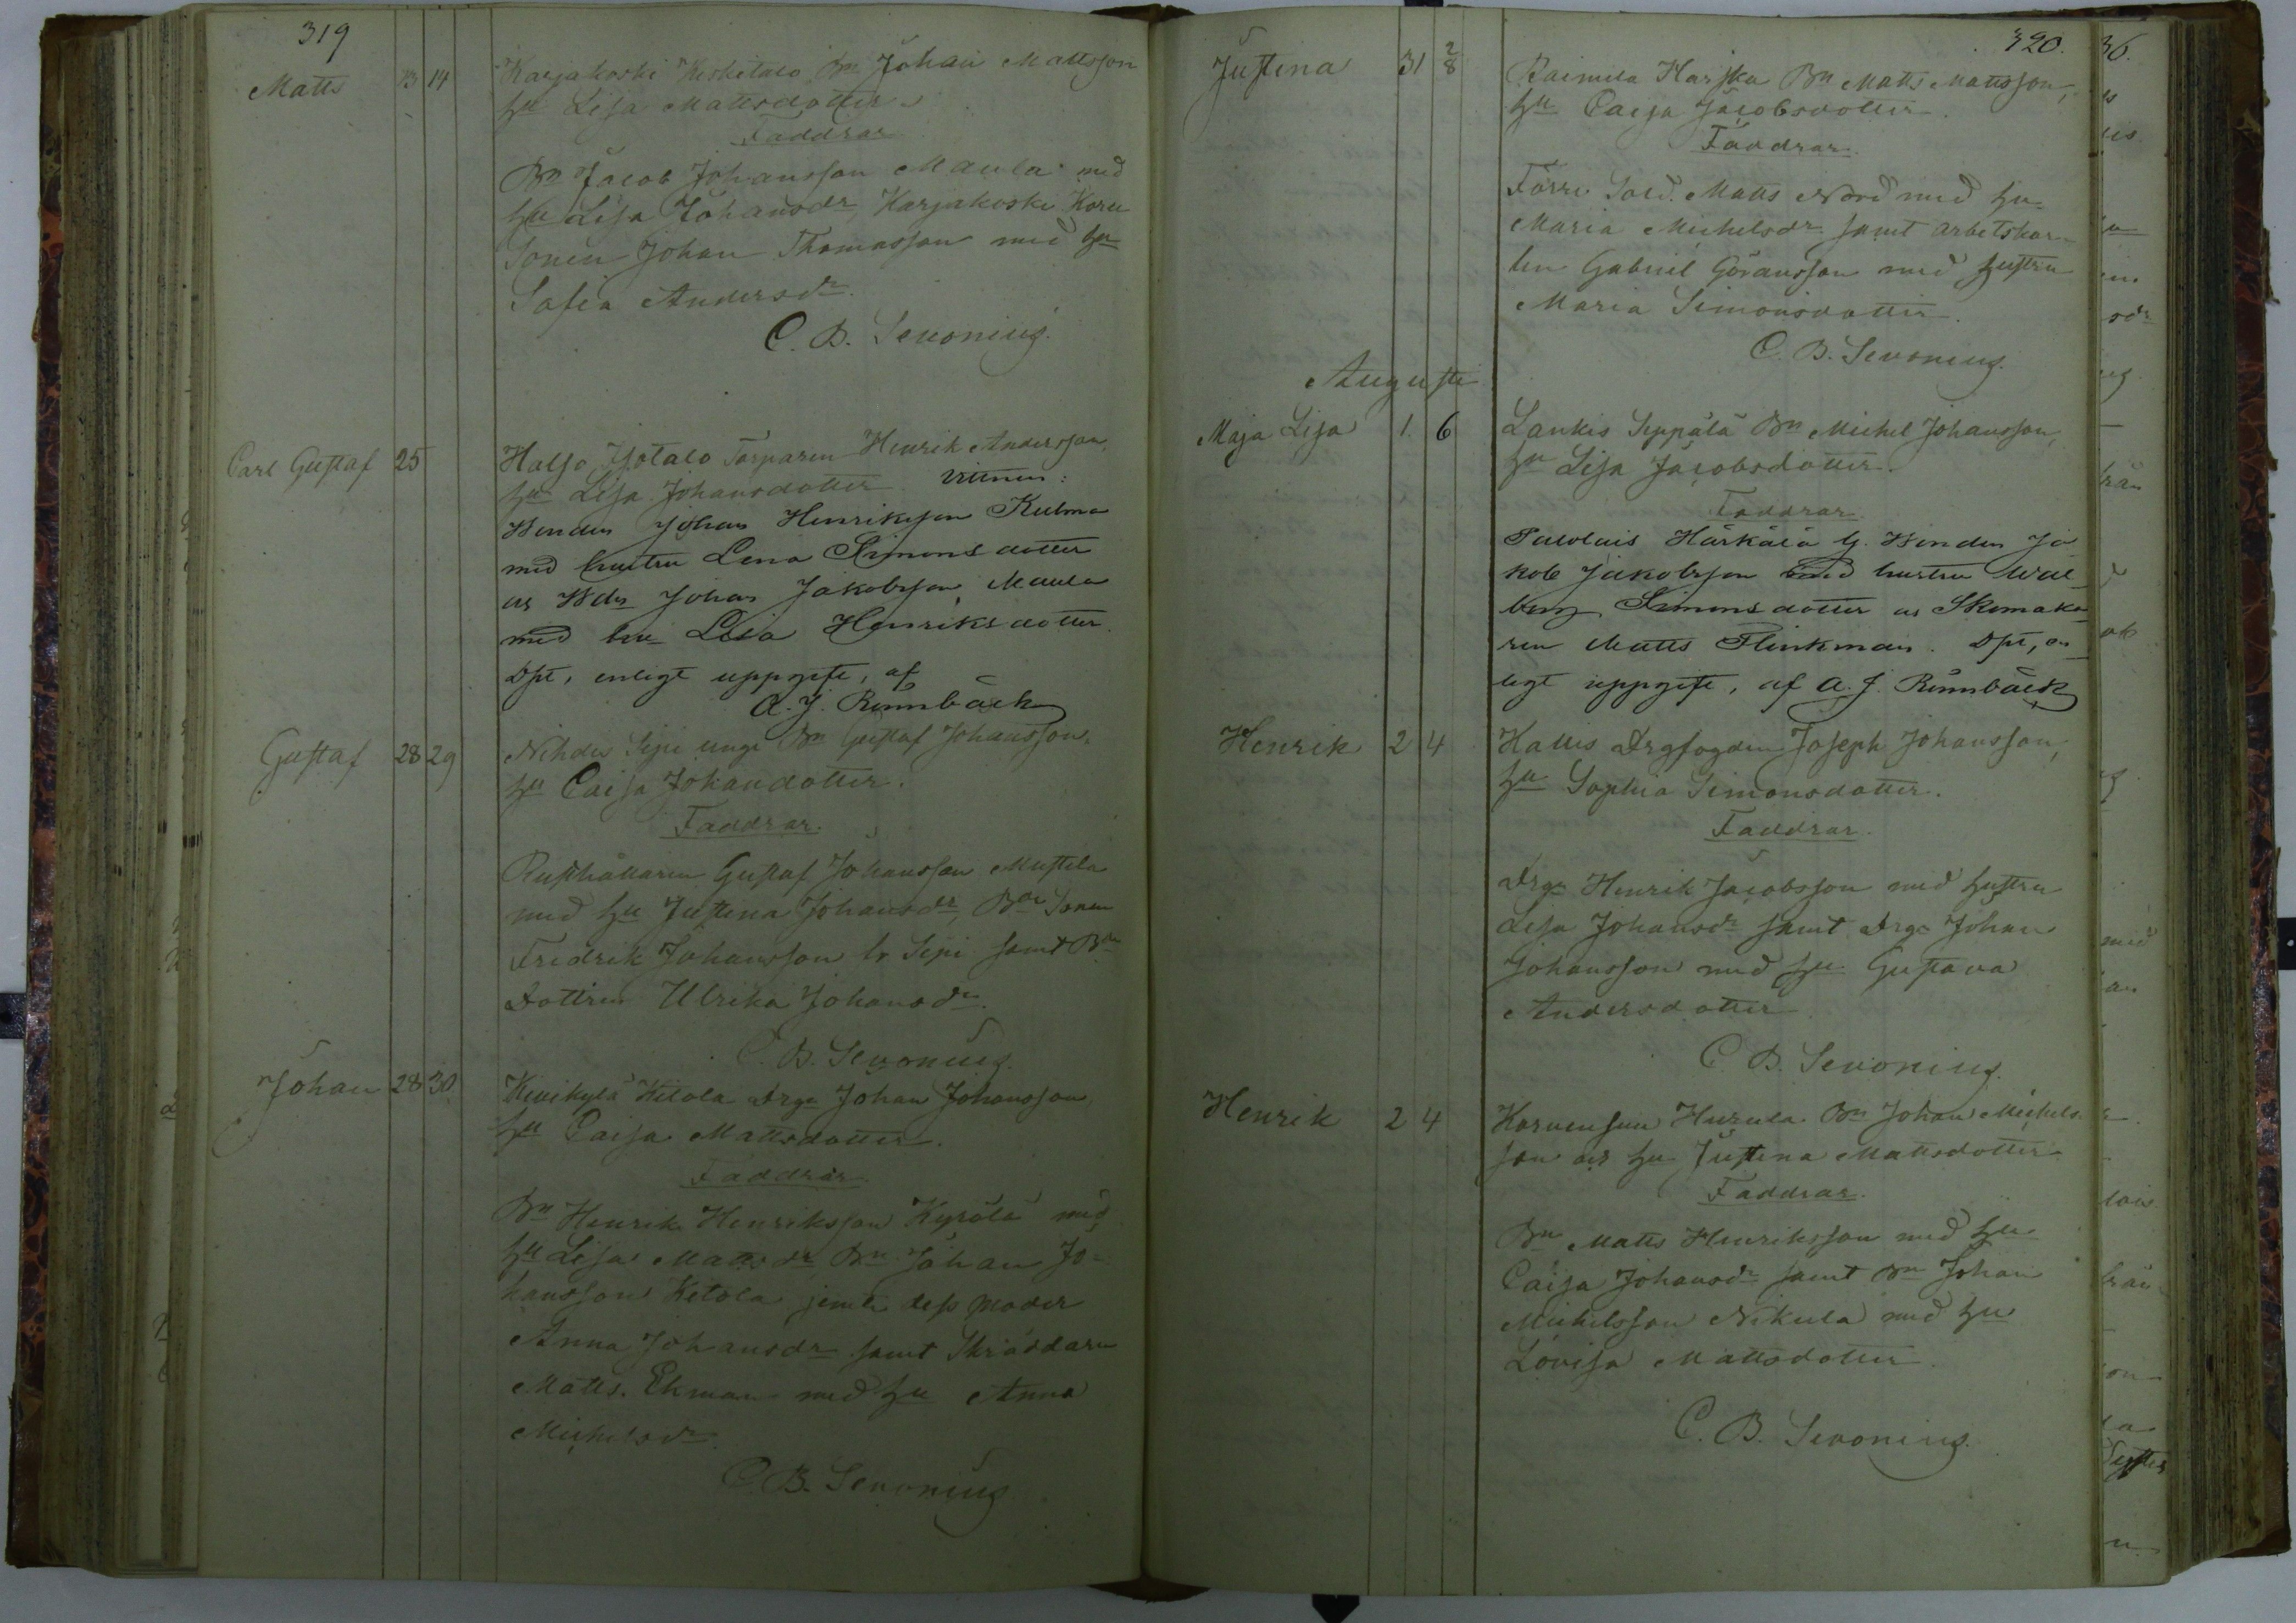 319
Matts 13 14 Karjakoski Keskitalo Bn Johan Mattsson
hu Lisa Mattsdotter
Faddrar
Bn Jacob Johansson Maula med
hu Lisa Johansdr Karjakoski
Sonen Johan Thomasson med hu
Sofia Andersdr
C. B. Sevonius.
Carl Gustaf 25 Haljo Torparen Henrik Andersson
hu Lisa Johansdotter vittnen:
Bonden Johan Henriksson Kulma
med hustru Lena Simonsdotter
os Bdn Johan Jakobsson Maula
med hu Lisa Henriksdotter.
Dpt, enligt uppgift, af
A. J. Rönnbäck
Gustaf 28 29 Nihdis Sipi unge Bn Gustaf Johansson,
hu Caisa Johandotter.
Faddrar.
Rusthållaren Gustaf Johansson Mustila
med hu Justina Johansdr, Bde Sonen
Fredrik Johansson fr Sipi samt Bde
Dottren Ulrika Johansdr.
C. B. Sevonius.
Johan 28 30. Kivikylä Ketola Drge Johan Johansson,
hu Caisa Mattsdotter.
Faddrar.
Bn Henrik Henriksson Kyrölä med
hu Lisa Mattsdr Bn Johan Jo-
hansson Ketola jemte dess moder
Anna Johansdr samt Skräddare
Matts Ekman med hu Anna
Michelsdr.
C. B. Sevonius
320.
Justina 31 2/8 Raimela Harska Bn Matts Mattsson,
hu Caisa Jacobsdotter.
Faddrar.
Förre Sold. Matts Nord med hu
Maria Michelsdr samt arbetskar-
len Gabriel Göransson med hustru
Maria Simonsdotter.
C. B. Sevonius.
Augusti
Maja Lisa 1. 6 Lankis Seppälä Bn Michel Johansson,
hu Lisa Jacobsdotter.
Faddrar.
Härkälä g. Bonden Ja
kob Jakobsson med hustru Wal
borg Simonsdotter os Skomaka
ren Matts Flinkman. Dpt, en
ligt uppgift, af A. J. Rönnbäck
Henrik 2 4 Hallis Drgfogden Joseph Johansson,
hu Sophia Simonsdotter.
Faddrar.
Drge Henrik Jacobsson med hustru
Lisa Johansdr samt Drge Johan
Johansson med hu Gustava
Andersdotter
C. B. Sevonius.
Henrik 2 4 Korvensuu Huzula Bn Johan Michels-
son os hu Justina Mattsdotter
Faddrar.
Bn Matts Henriksson med hu
Caisa Johansdr samt Bn Johan
Michelsson Nikula med hu
Lovisa Mattsdotter
C. B. Sevonius.